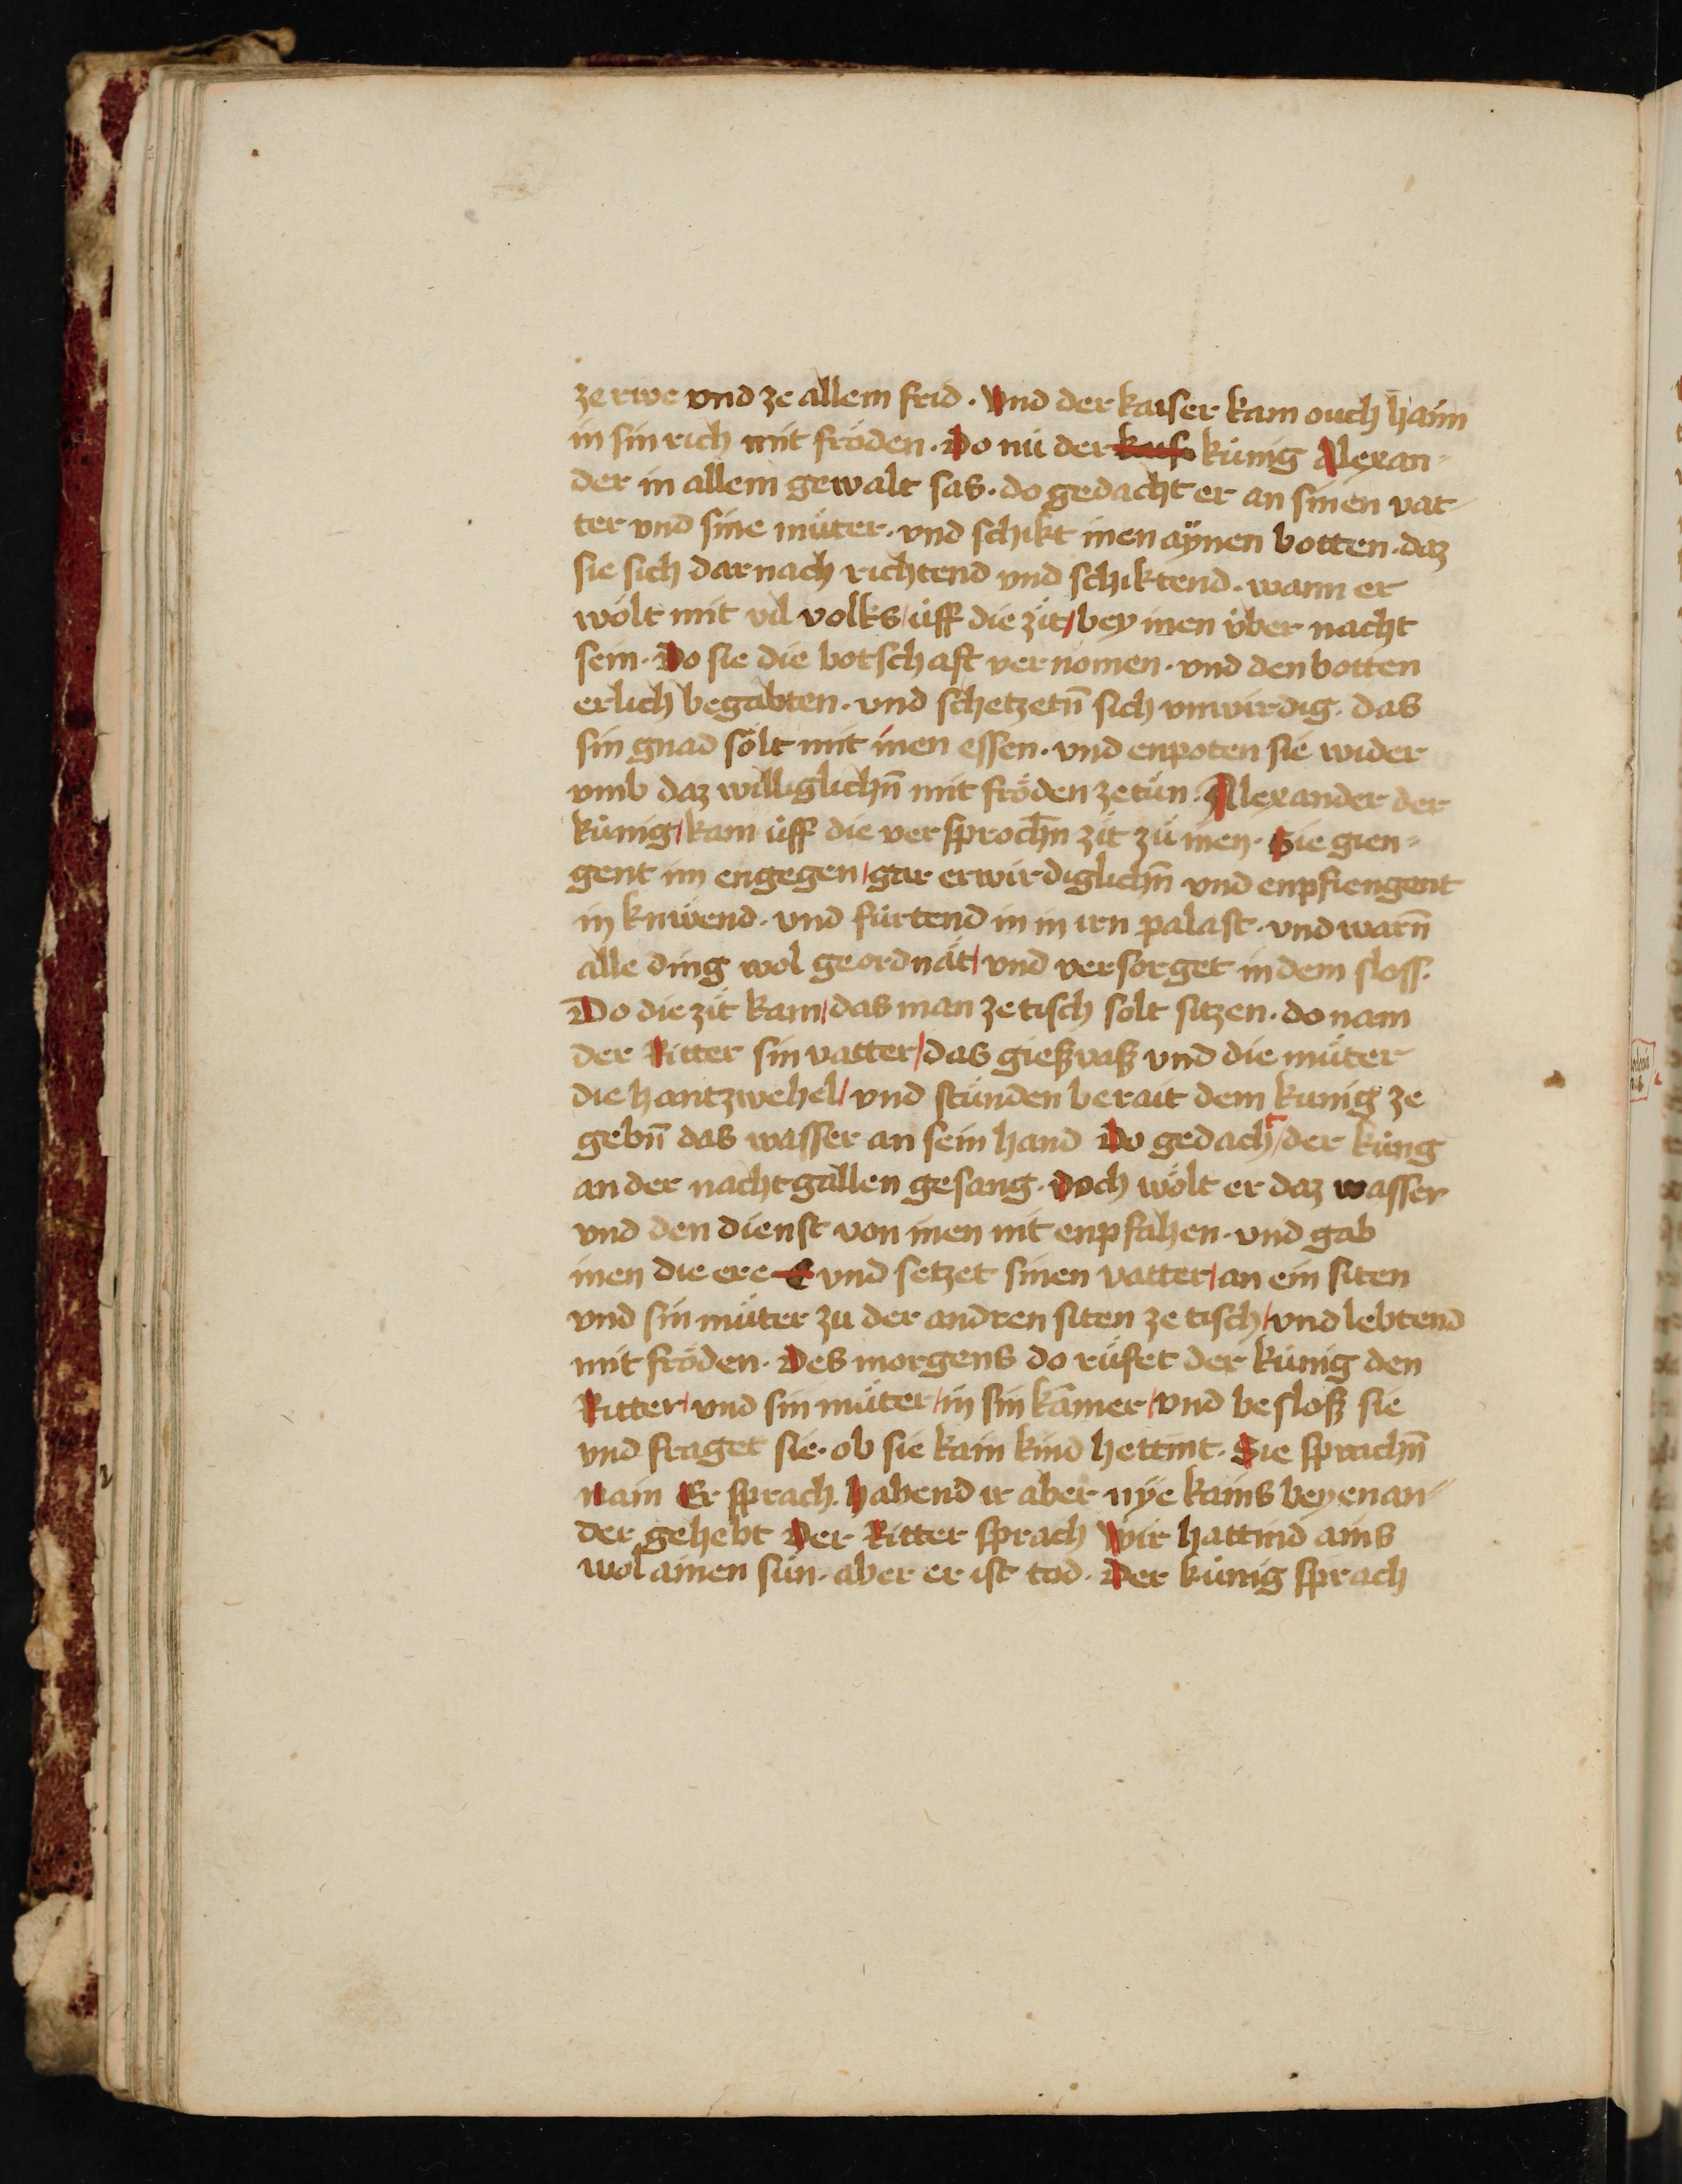 ze rwe vnd ze allem frid · Vnd der kaiser kam ouch haim
in sin rich mit fröden · Do nü der kaiser künig Alexan⸗
der in allem gewalt sas · do gedacht er an sinen vat⸗
ter vnd sine müter · vnd schikt inen aÿnen botten · daz
sie sich darnach richtend vnd schiktend · wann er
wölt mit vil volks / üff die zit / bey inen über nacht
sein · Do sie die botschaft vernomen · vnd den botten
erlich begabten · vnd schetzetn̄ sich vnwirdig · das
sin gnad sölt mit inen essen · vnd enpoten sie wider
vmb daz williglichn̄ mit fröden zetün · Alexander der
künig / kam üff die versprochn̄ zit zü inen · Sie gien⸗
gent im engegen / gar erwirdiglichn̄ vnd enpfiengent
in knüwend · vnd fürtend in in irn palast · vnd warn̄
alle ding wol geordnät / vnd versorget in dem sloss ·
Do die zit kam / das man ze tisch solt sitzen · do nam
der Ritter sin vatter / das gießvaß vnd die müter
die hantzwehel / vnd stünden berait dem kunig ze
gebn̄ das wasser an sein hand Do gedacht / der küng
an der nachtgallen gesang · Doch wölt er daz wasser
vnd den dienst von inen nit enpfahen · vnd gab
inen die ere vnd setzet sinen vatter / an ein siten
vnd sin müter zu der andren siten ze tisch / vnd lebtend
mit fröden · Des morgens do rüfet der künig den
Ritter / vnd sin müter / in sin kāmer / vnd besloß sie
vnd fraget sie · ob sie kain kind hettint · Sie sprachn̄
nain Er sprach · habend ir aber nÿe kains beyenan⸗
der gehebt Der Ritter sprach Wir hattind ains
wol ainen sün · aber er ist tod · Der künig sprach